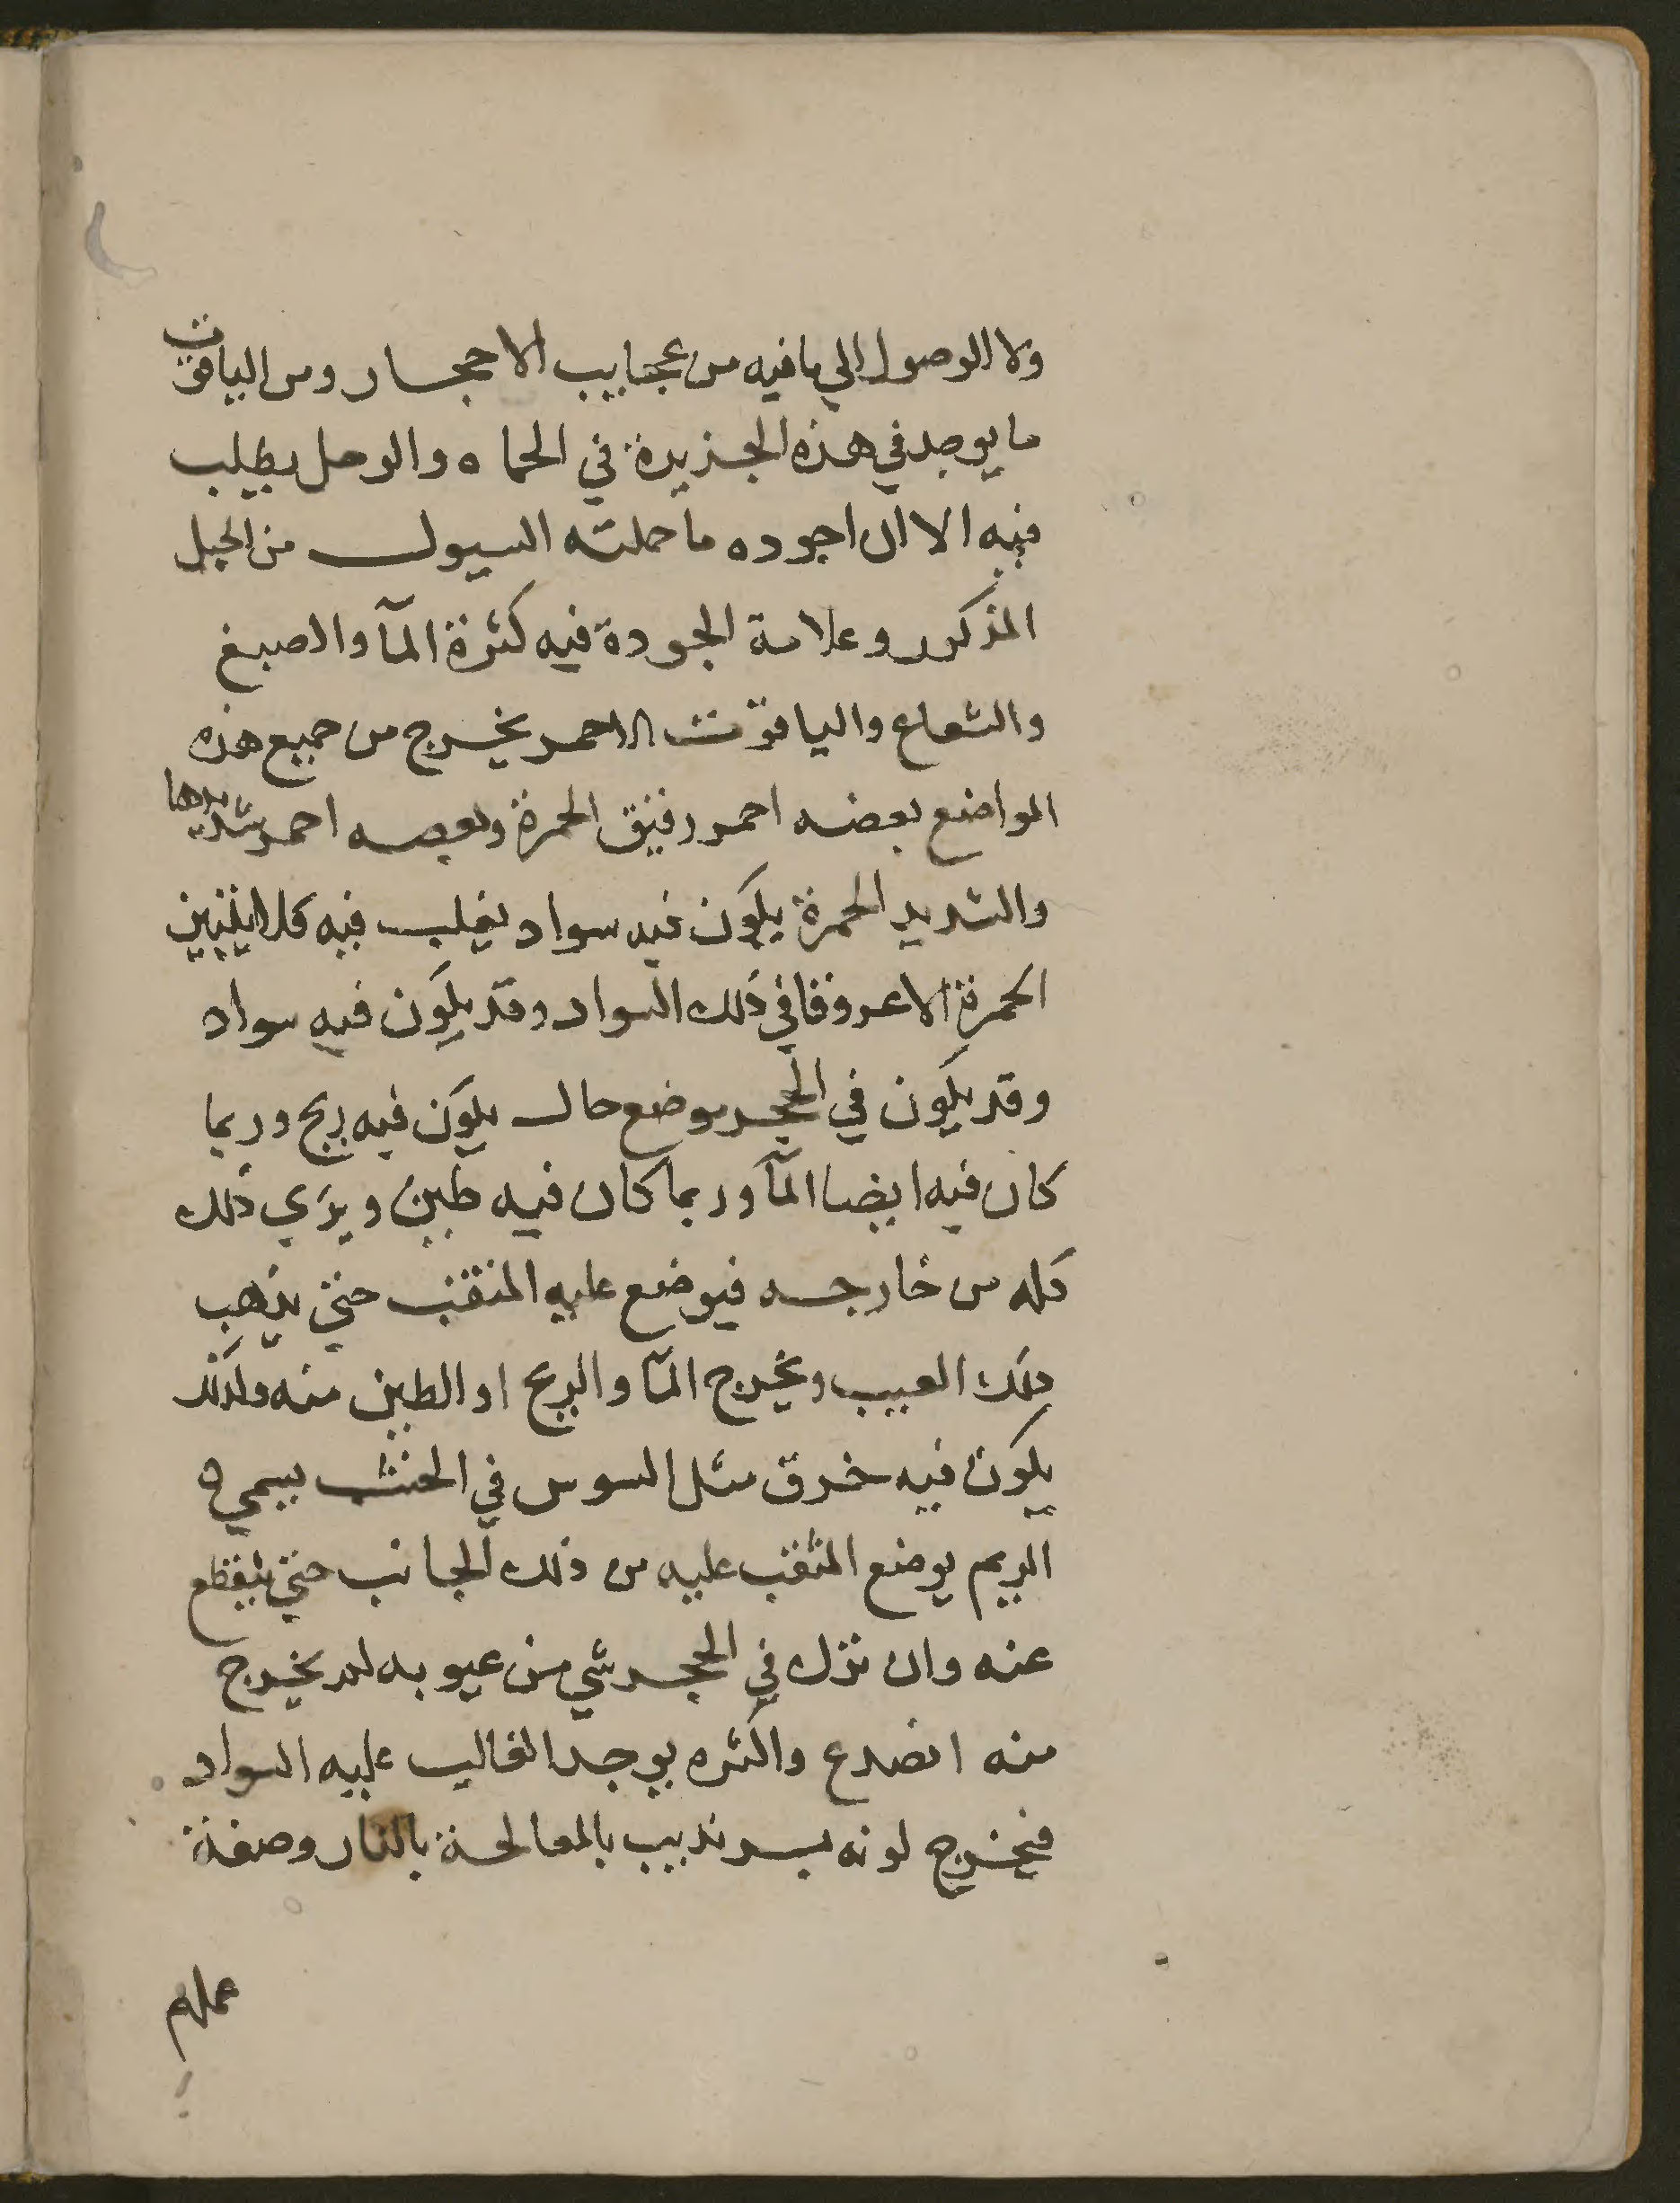 ولا الوصول الي ما فيه من عجايب الاحجار ومن الياقوت
ما يوجد في هذه الجزيرة في الحماه والوحل يطلب
فيه الا ان اجوده ما حملته السيول من الجبل
المذكور وعلامة الجودة فيه كثرة المآ والصبغ
والشعاع والياقوت الاحمر يخرج من جميع هذه
المواضع بعضه احمر رقيق الحمرة وبعضه احمر شديدها
والشديد الحمرة يكون فيه سواد يغلب فيه فلا يتبين
الحمرة الا عروقا في ذلك السواد وقد يكون فيه سواد
وقد يكون في الحجر موضع خال يكون فيه ريح وربما
كان فيه ايضا المآ وربما كان فيه طين ويري ذلك
كله من خارجه فيوضع عليه المثقب حتي يذهب
ذلك العيب ويخرج المآ والريح او الطين منه وكذلك
يكون فيه خرق مثل السوس في الخشب يسمي
الريم يوضع المثقب عليه من ذلك الجانب حتي ينقطع
عنه وان نزل في الحجر شي من عيوبه لم يخرج
منه انصدع واكثره يوجد الغالب عليه السواد
فيخرج لونه بسرنديب بالمعالجة بالنار وصفة
عملهم